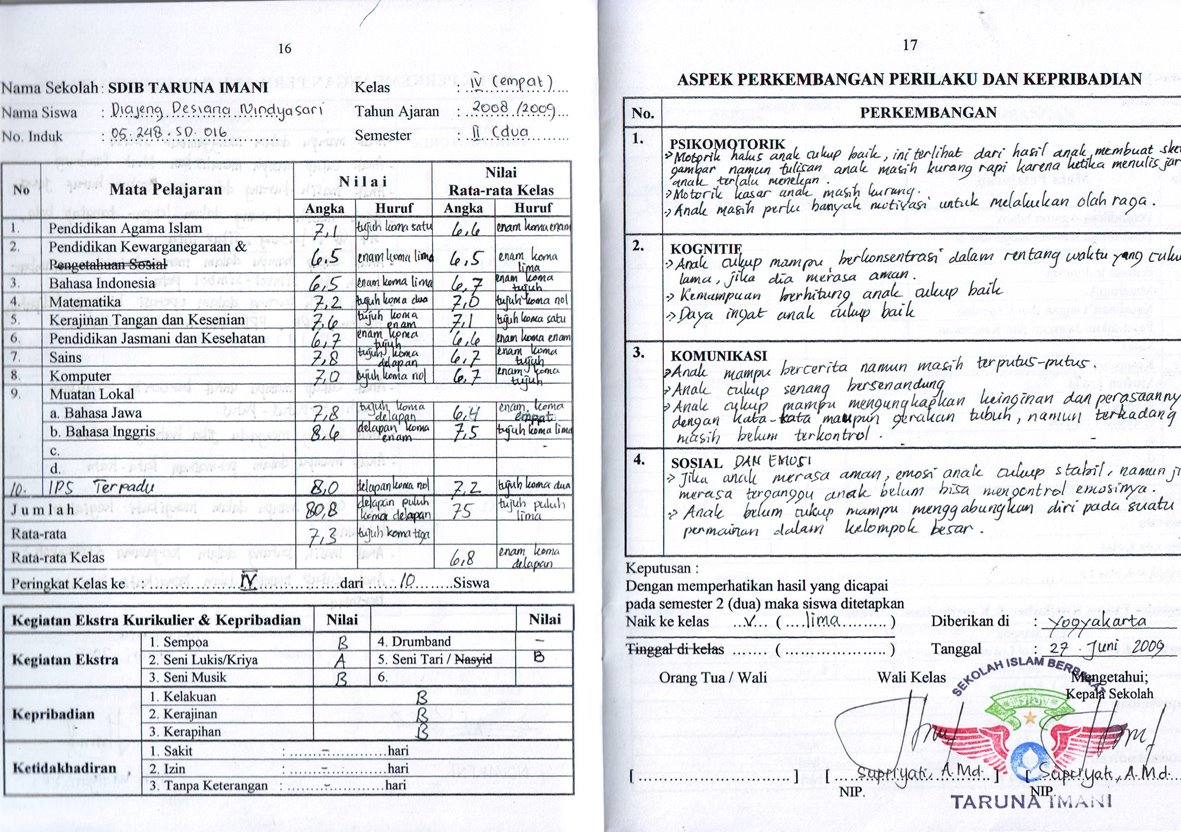 16
Nama Sekolah : SDIB TARUNA IMANI Kelas : IV (empat)
Nama Siswa : Diajeng Desiana Nindyasari Tahun Ajaran : 2008/2009
No. Induk : 05.248.SD.016 Semester : II (dua
No Mata Pelajaran Nilai Nilai Rata-rata Kelas
Angka Huruf Angka Huruf
1. Pendidikan Agama Islam 7,1 tujuh koma satu 6,6 enam koma enam
2. Pendidikan Kewarganegaraan & Pengetahuan Sosial 6,5 enam koma lima 6,5 enam koma lima
3. Bahasa Indonesia 6,5 enam koma lima 6,7 enam koma tujuh
4. Matematika 7,2 tujuh koma dua 7,0 tujuh koma nol
5. Kerajinan Tangan dan Kesenian 7,6 tujuh koma enam 7,1 tujuh koma satu
6. Pendidikan Jasmani dan Kesehatan 6,7 enam koma tujuh 6,6 enam koma enam
7. Sains 7,8 tujuh koma delapan 6,7 enam koma tujuh
8. Komputer 7,0 tujuh koma nol 6,7 enam koma tujuh
9. Muatan Lokal
a. Bahasa Jawa 7,8 tujuh koma delapan 6,4 enam koma empat
b. Bahasa Inggris 8,6 delapan koma enam 7,5 tujuh koma lima
c. -
d.
10. IPS Terpadu 8,0 delapan koma nol 7,2 tujuh koma dua
Jumlah 80,8 delapan puluh koma delapan 75 tujuh puluh lima
Rata-rata 7,3 tujuh koma tiga
Rata-rata Kelas 6,8 enam koma delapan
Peringkat Kelas ke : IV dari 10 Siswa
Kegiatan Ekstra Kurikulier & Kepribadian Nilai Nilai
Kegiatan Ekstra 1. Sempoa B 4. Drumband -
2. Seni Lukis/Kriya A 5. Seni Tari / Nasyid B
3. Seni Musik B 6.
Kepribadian 1. Kelakuan B
2. Kerajinan B
3. Kerapihan B
Ketidakhadiran 1. Sakit : - hari
2. Izin : - hari
3. Tanpa Keterangan : - hari
17
ASPEK PERKEMBANGAN PERILAKU DAN KEPRIBADIAN
No. PERKEMBANGAN
1. PSIKOMOTORIK
Motorik halus anak cukup baik, ini terlihat dari hasil anak membuat
gambar namun tulisan anak masih kurang rapi karena ketika menulis
anak terlalu menekan.
Motorik kasar anak masih kurang.
Anak masih perlu banyak motivasi untuk melakukan olah raga.
2. KOGNITIF
Anak cukup mampu berkonsentrasi dalam rentang waktu yang
lama, jika dia merasa aman.
Kemampuan berhitung anak cukup baik
Daya ingat anak cukup baik
3. KOMUNIKASI
Anak mampu bercerita namun masih terputus-putus.
Anak cukup senang bersenandung
Anak cukup mampu mengungkapkan keinginan dan perasaanny
dengan kata-kata maupun gerakan tubuh, namun terkadang
masih belum terkontrol.
4. SOSIAL DAN EMOSI
Jika anak merasa aman, emosi anak cukup stabil, namun
merasa terganggu anak belum bisa mengontrol emosinya.
Anak belum cukup mampu menggabungkan diri pada suatu
permainan dalam kelompok besar.
Keputusan :
Dengan memperhatikan hasil yang dicapai
pada semester 2 (dua) maka siswa ditetapkan
Naik ke kelas V (lima) Diberikan di : Yogyakarta
Tinggal di kelas ....... (.....................) Tanggal : 27 Juni 2009
Orang Tua / Wali Wali Kelas Mengetahui;
Kepala Sekolah
SEKOLAH ISLAM
[.........................] [Supriyati, A.Md.] [Supriyati, A.Md.
NIP. NIP.
TARUNA IMANI